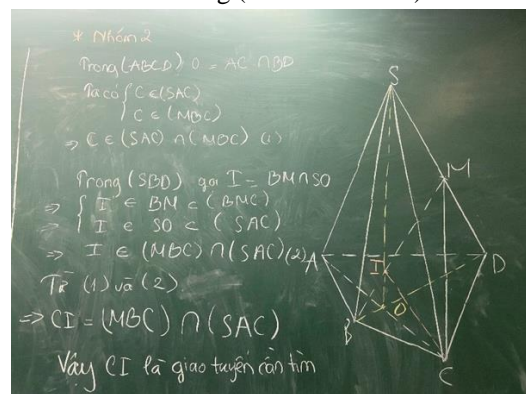 * Nhóm 2
Trong (ABCD) O = AC ∩ BD
Ta có { C ∈ (SAC)
C ∈ (MBC)
⇒ C ∈ (SAC) ∩ (MBC) (1)
Trong (SBD) gọi I = BM ∩ SO
⇒ { I ∈ BM ⊂ (BMC)
⇒ I ∈ SO ⊂ (SAC)
⇒ I ∈ (MBC) ∩ (SAC) (2)
Từ (1) và (2)
⇒ CI = (MBC) ∩ (SAC)
Vậy CI là giao tuyến cần tìm
S
M
A
I
D
O
B
C